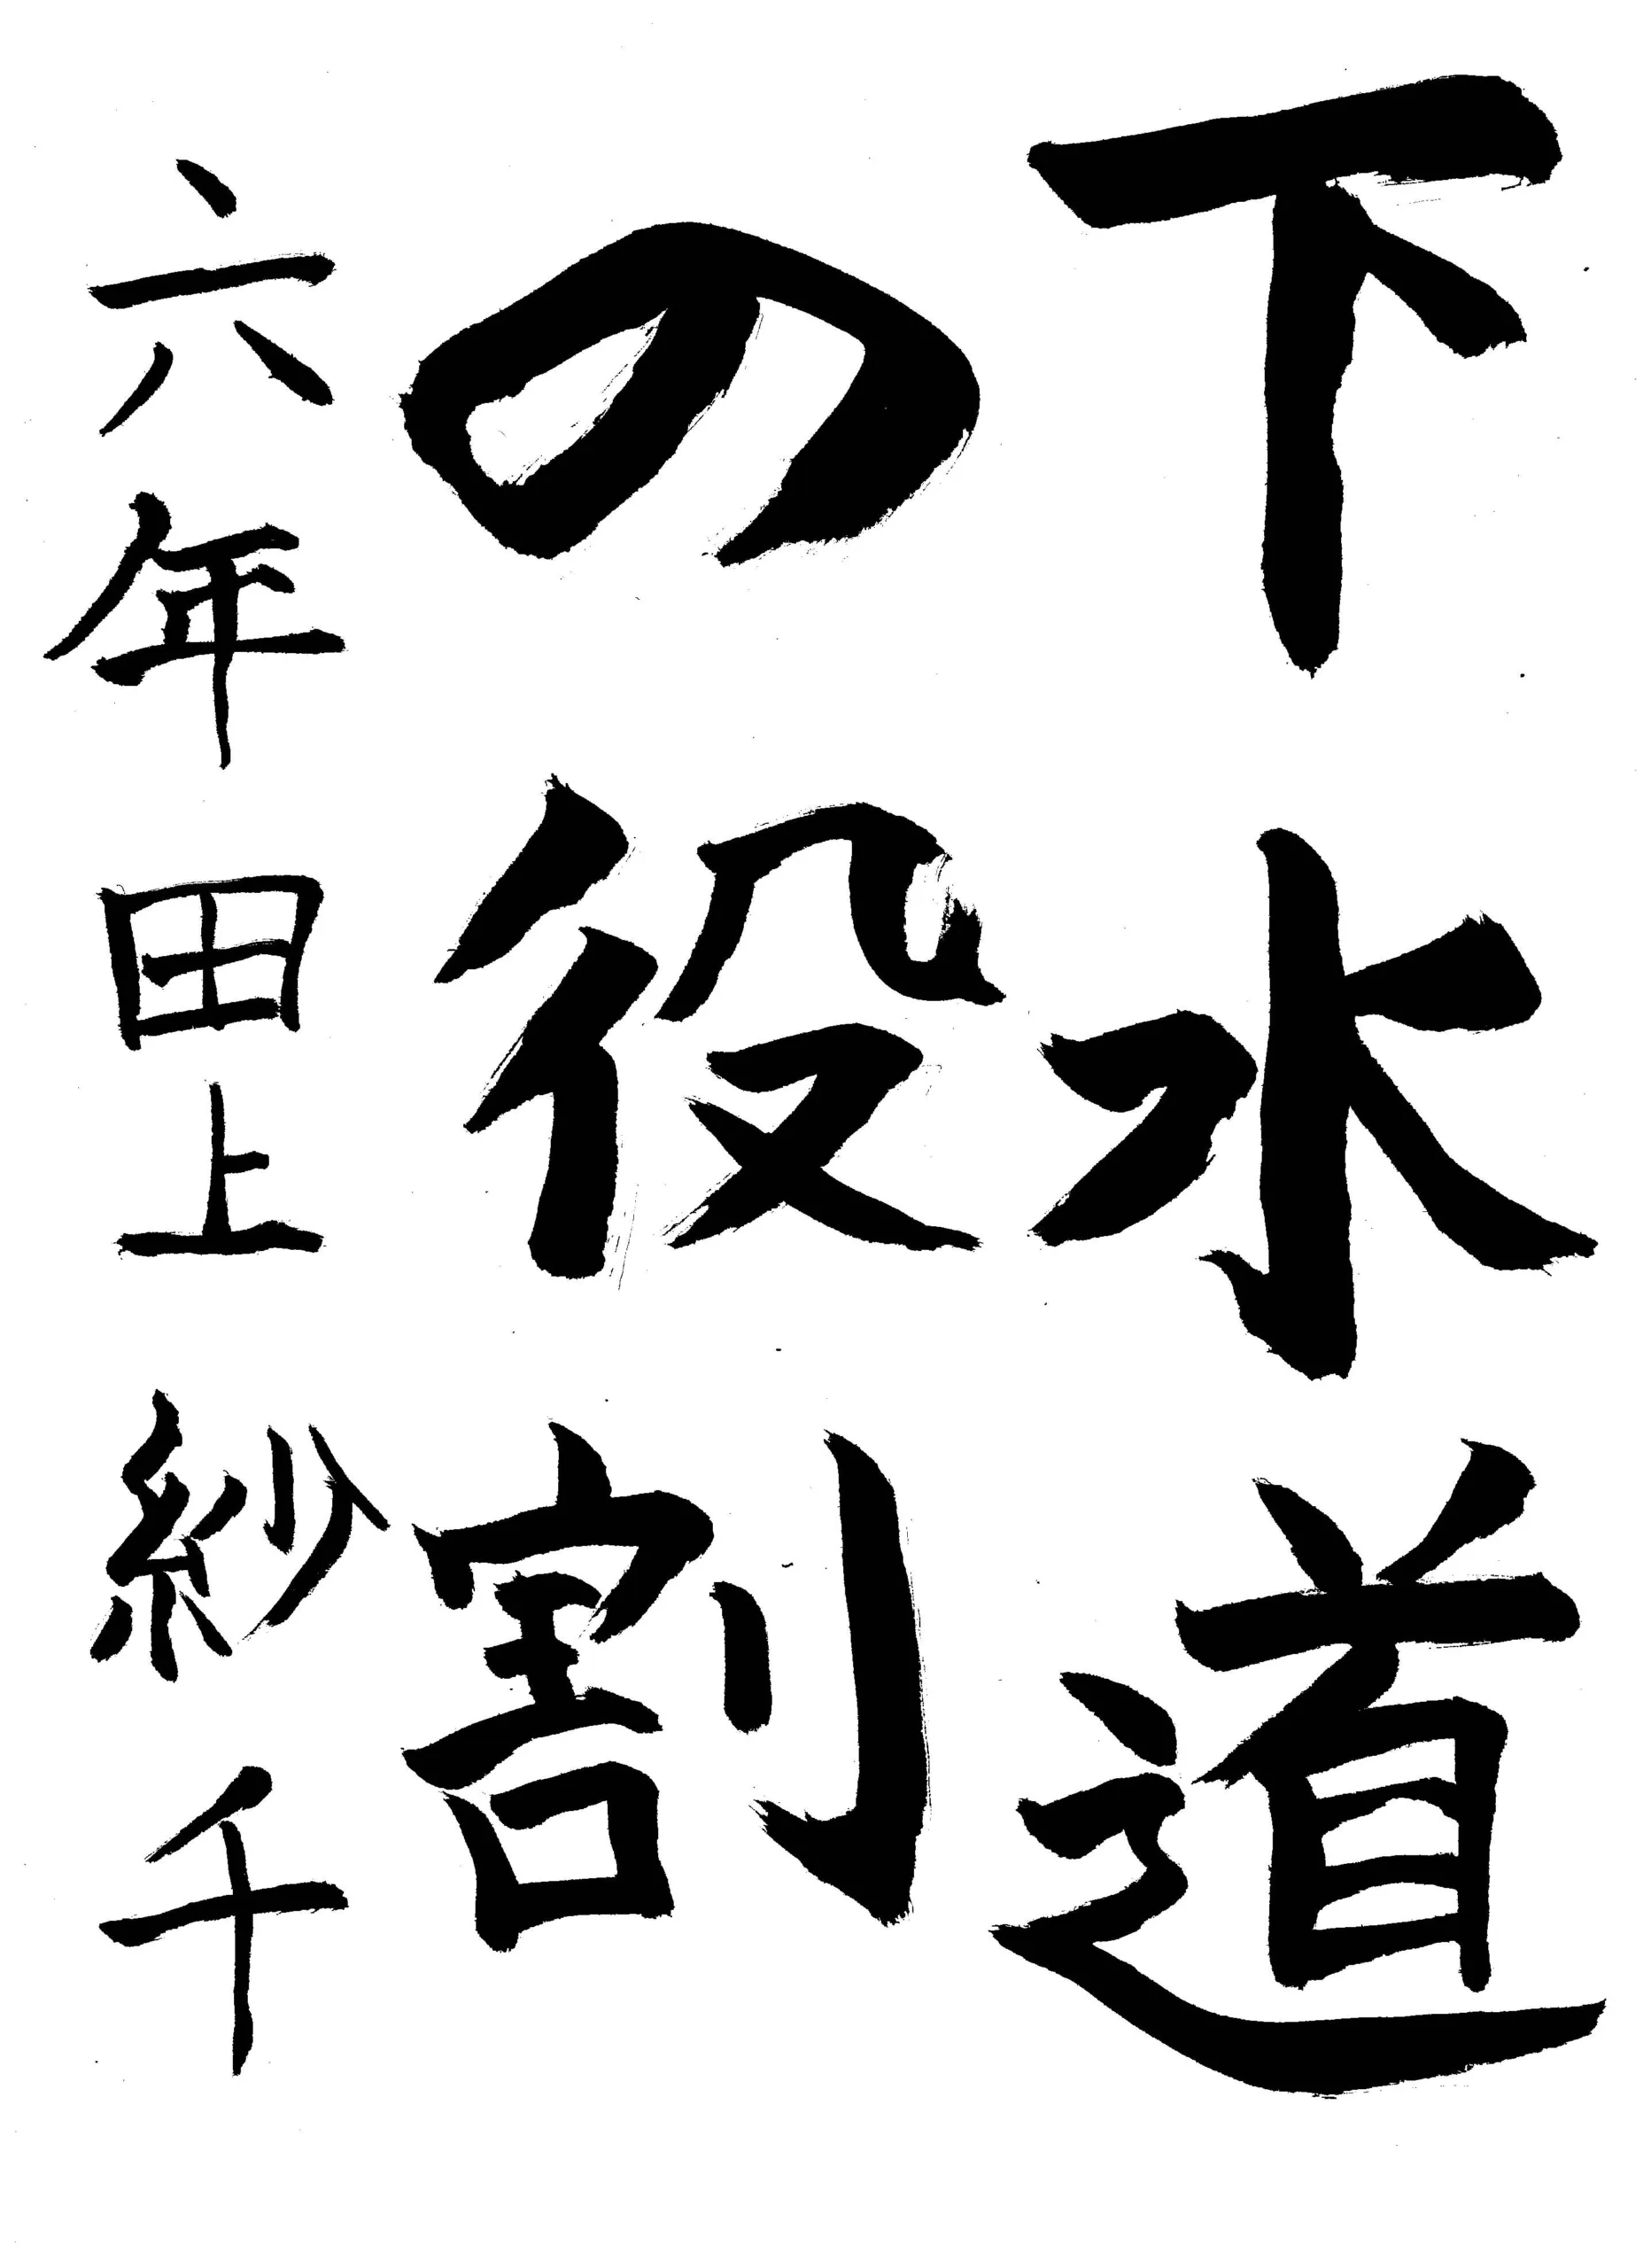 下水道
の役割
六年田上紗千